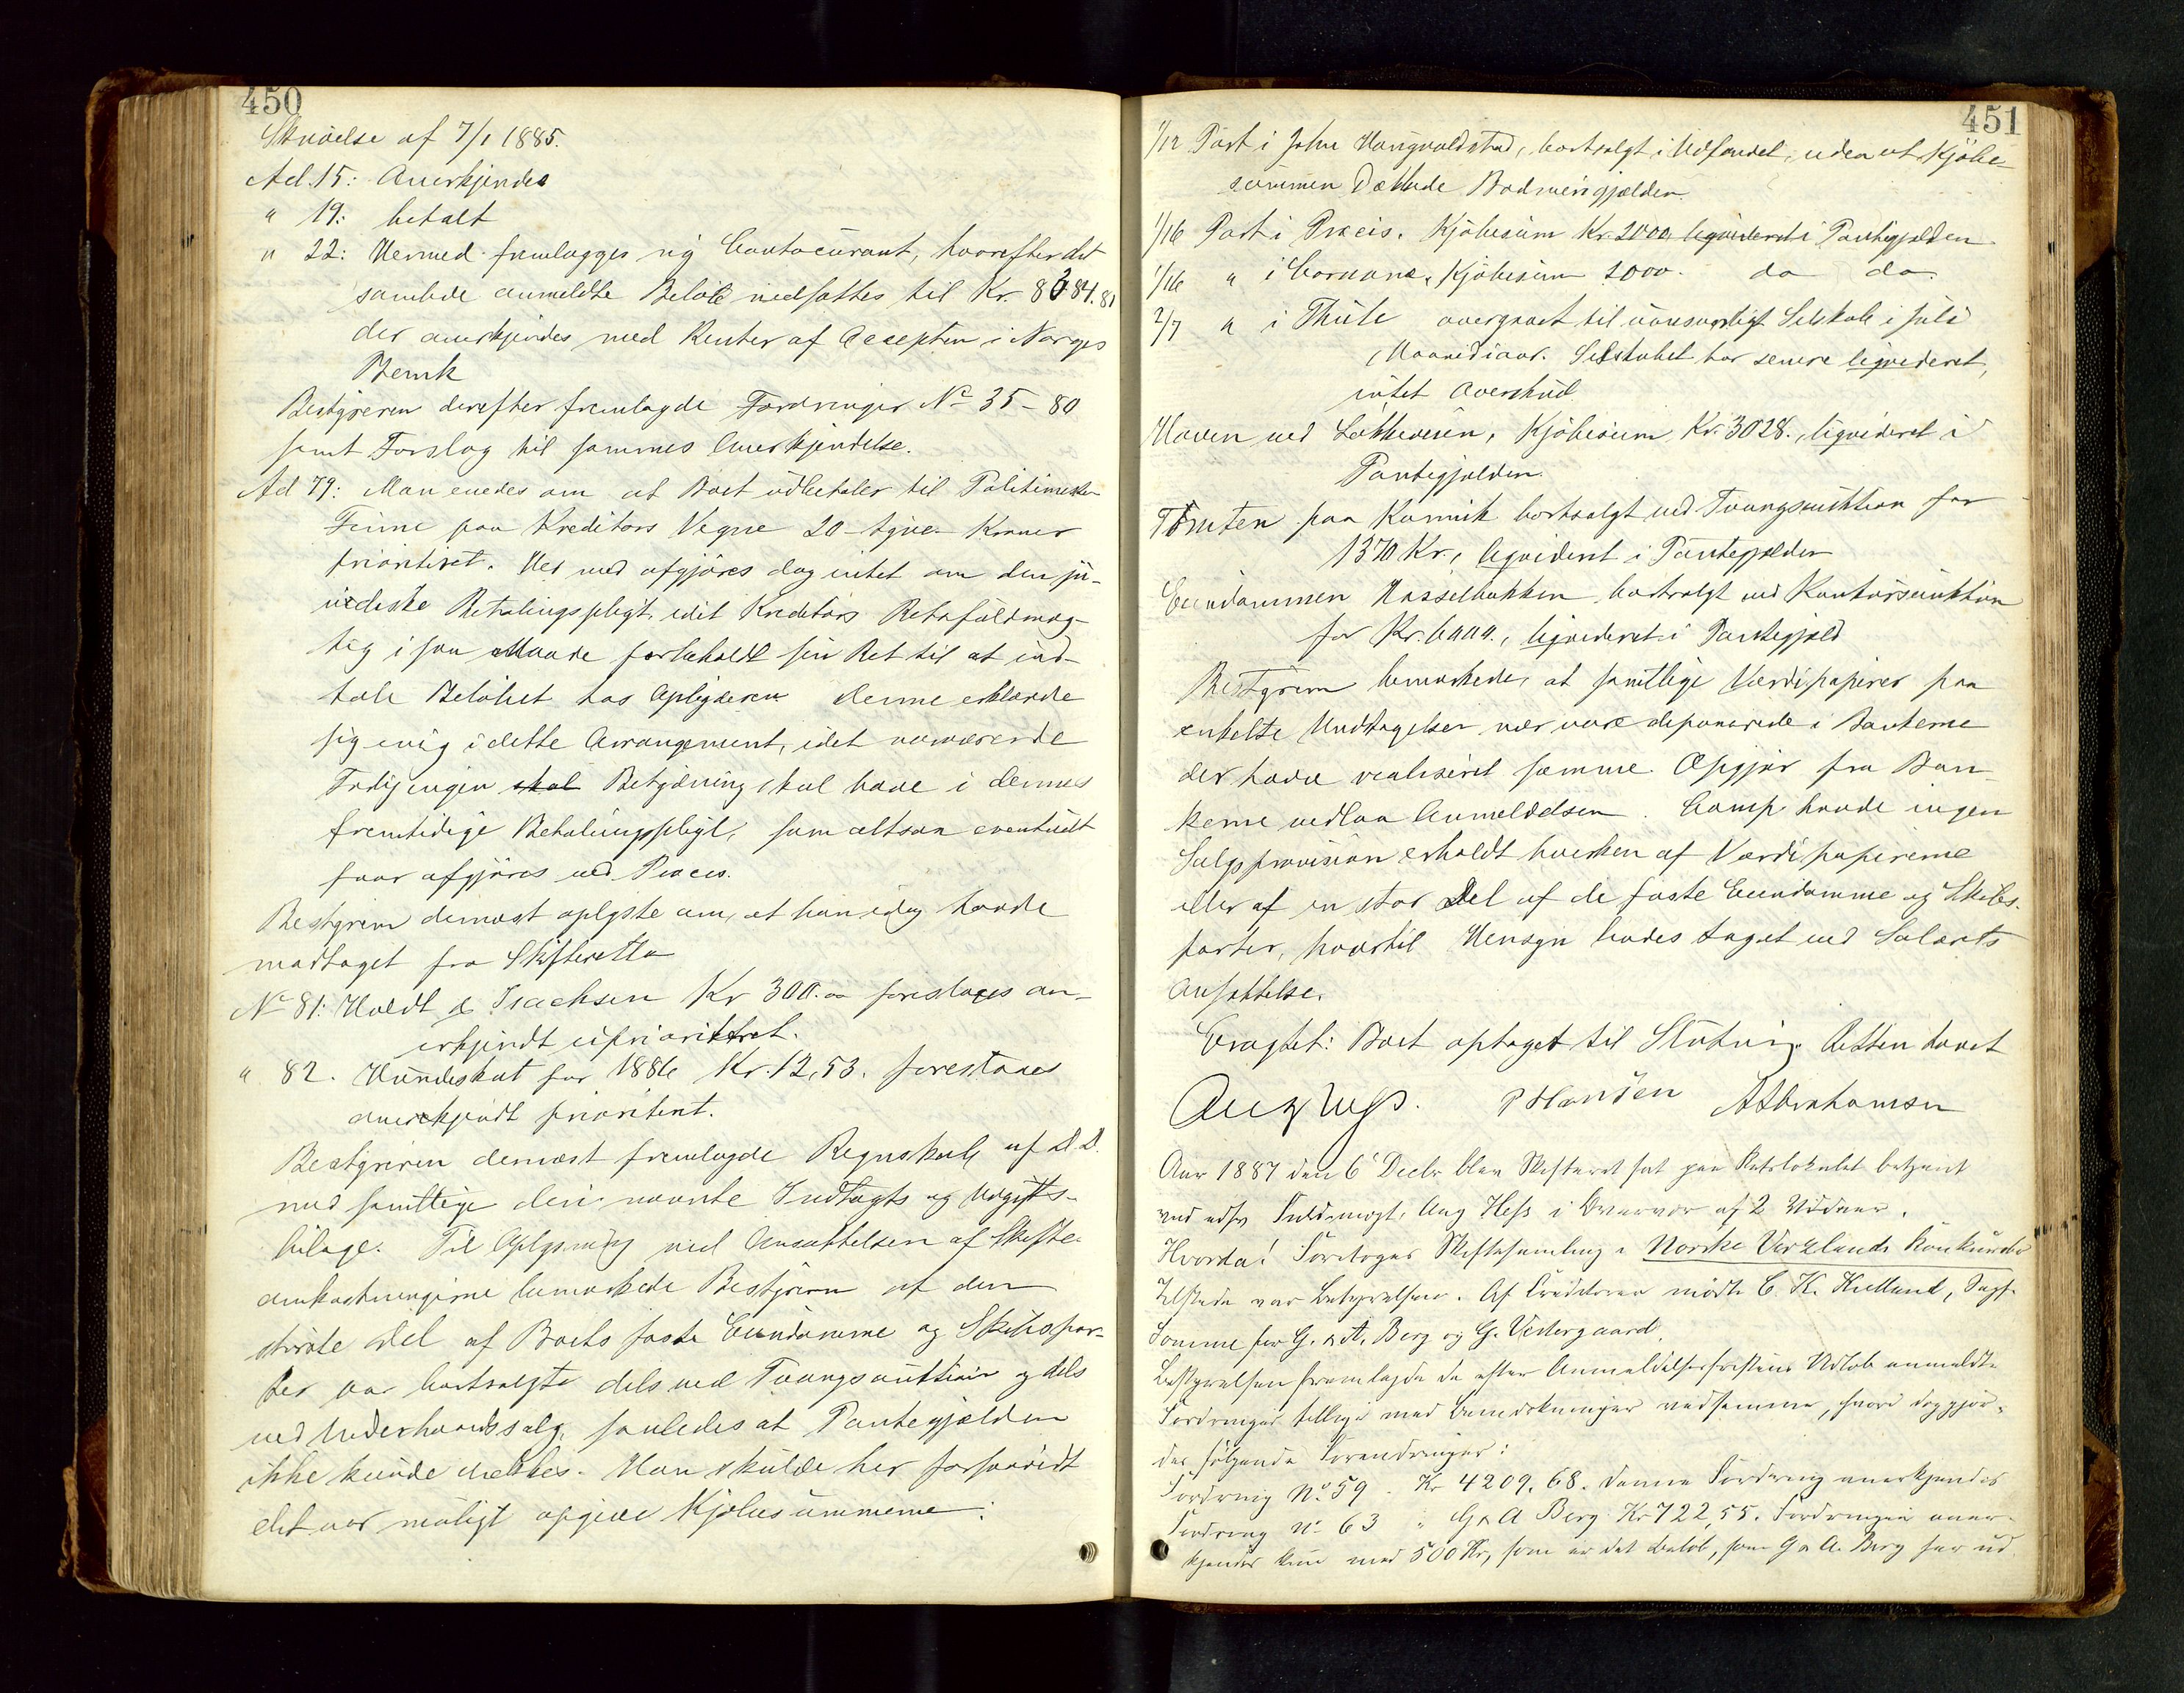 450
Skrivelse af 7/1 1885.
Ad. 15: Anerkjendes
" 19: betalt
" 22: Hermed fremlægges ny Contocurant, hvorefter det
samlede anmeldte Beløb nedsættes til Kr. 8384.81
der anerkjendes med Renter af Accepten i Norges
Bank
Bestyreren derefter fremlagde Fordringer No 35 - 80
samt Forslag til sammes Anerkjendelse.
Ad 79: Man enedes om at Boet udbetaler til Politimester
Finne paa Kreditors Vegne 20 - tyve - Kroner
prioritert. Her med afgjøres dog intet om den ju-
ridiske Betalingspligt, idet Kreditors Retsfuldmæg-
tig i saa Maade forbeholdt sin Ret til at ind-
tale Beløbet hos Oplyderen. Denne erklærede
sig enig i dette Arrangement, idet nærværende
Frdig ingen skal Betydning skal have i dennes
fremtidige Betalingspligt, som altsaa eventuelt
faar afgjøres ved Proces.
Bestyreren dernæst oplyste om, at han idag havde
modtaget fra Skifteretten
No 81: Holdt & Isachsen Kr 300.00 foreslaaes an-
erkjendt uprioritert.
" 82. Hundeskat for 1886 Kr. 12,53. foreslaaes
anerkjendt prioritert.
Bestyreren dernæst fremlagde Regnskab af D. D.
med samtlige deri nævnte Indtægts og Udgifts-
bilage. Til Oplysning ved Ansættelsen af Skifte-
omkostningerne bemærkede Bestyreren at den
største Del af Boets faste Eiendomme og Skibspar-
ter var bortsolgte dels ved Tvangsauktion og dels
ved Underhaandssalg, saaledes at Pantegjælden
ikke kunde dækkes. Han skulde her forsaavidt
det var muligt opgive Kjøbesummerne:
451
1/12 Part i John Haugvaldstad, bortsolgt i Udlandet, uden at Kjøbe-
summen dækkede Bodmerigjælden.
1/16 Part i Præcis. Kjøbesum Kr. 2000 liqvideret i Pantegjælden.
1/16 " i Cornane, Kjøbesum 1000. do do.
2/7 " i Thule overgaaet til uansvarligt Selskab i Juli
Maaned iaar. Selskabet har senere liqvideret,
intet Overskud
Haven ved Løkkeveien, Kjøbesum Kr. 3028., liqvideret i
Pantegjælden.
Tomten paa Karmik bortsolgt ved Tvangsauktion for
1370 Kr., liqvideret i Pantegjælden
Eiendommen Hasselbakken bortsolgt ved Konkursauktion
for Kr. 6000., liqvideret i Pantegjæld
Bestyreren bemærkede, at samtlige Værdipapirer paa
enkelte Undtagelser nær vare deponerede i Bankerne
der havde realiseret samme. Opgjør fra Ban-
kerne vedlaa Anmeldelsen. Comp. havde ingen
Salgsprovision erholdt hverken af Værdipapirerne
eller af en stor Del af de faste Eiendomme og Skibs-
parter, hvortil Hensyn bedes taget ved Salærets
Ansættelse.
Eragtet: Boet optaget til Slutning. Retten hævet
Aug Hess. P Hansen A Abrahamsen
Aar 1887 den 6' Decbr blev Skifteret sat paa Retslokalet betjent
ved edsv Fuldmægt. Aug Hess i Overvær af 2 Vidner.
Hvorda! Foretoges Skiftesamling i Norske Verzlands Konkursbo
Tilstede var Bestyrelsen. Af Creditorer mødte C. K. Kielland, Sagf.
Somme for G. & A. Berg og G. Vestergaard.
Bestyrelsen fremlagde de efter Anmeldelsesfristens Udløb anmeldte
Fordringer tillige med Bemærkninger ved samme, hvori dog gjør-
des følgende Forandringer:
Fordring No 59. Kr 4209.68. Denne Fordring anerkjendes
Fordring No 63 " G & A Berg Kr 722,55. Fordringen aner-
kjendes kun med 500 Kr, som er det Beløb, som G & A. Berg har ud